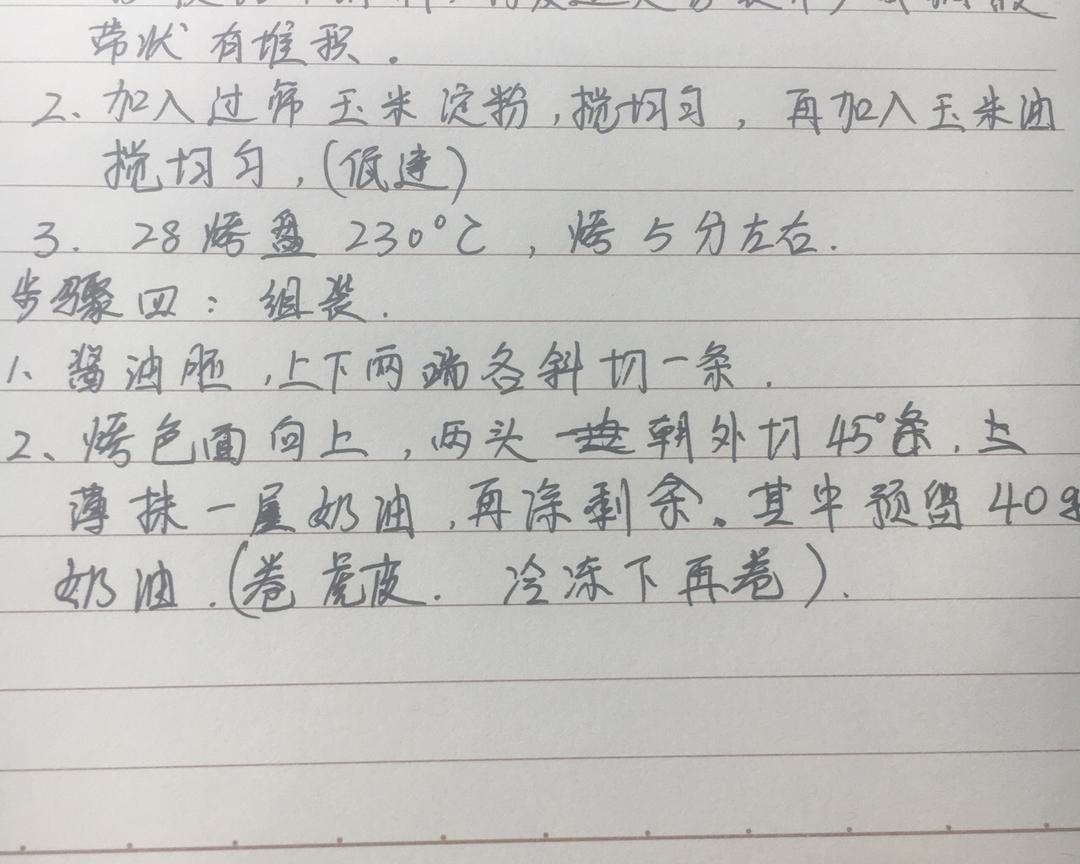 带状有堆积。
2、加入过筛玉米淀粉,搅均匀,再加入玉米油
搅均匀,(低速)
3. 28烤盘 230°C,烤5分左右.
步骤四:组装.
1、酱油胚,上下两端各斜切一条.
2、烤色面向上,两头朝外切45°条.上
薄抹一层奶油,再涂剩余。其中预留40g
奶油.(卷虎皮. 冷冻下再卷).